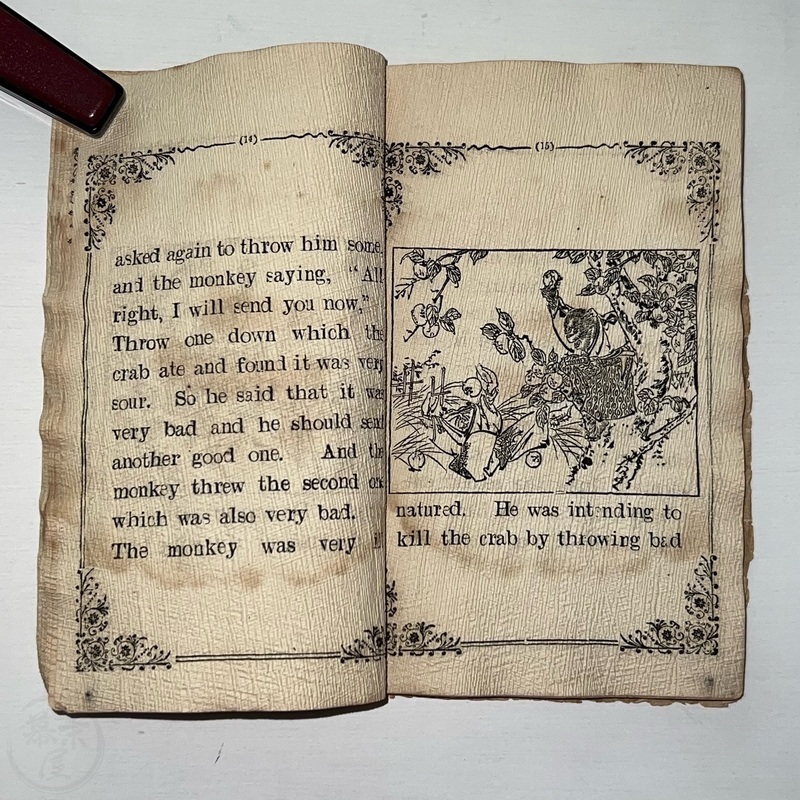 (14)
asked again to throw him some,
and the monkey saying, "All
right, I will send you now,"
Throw one down which the
crab ate and found it was very
sour. So he said that it was
very bad and he should send
another good one. And the
monkey threw the second one
which was also very bad.
The monkey was very ill
(15)
natured. He was intending to
kill the crab by throwing bad